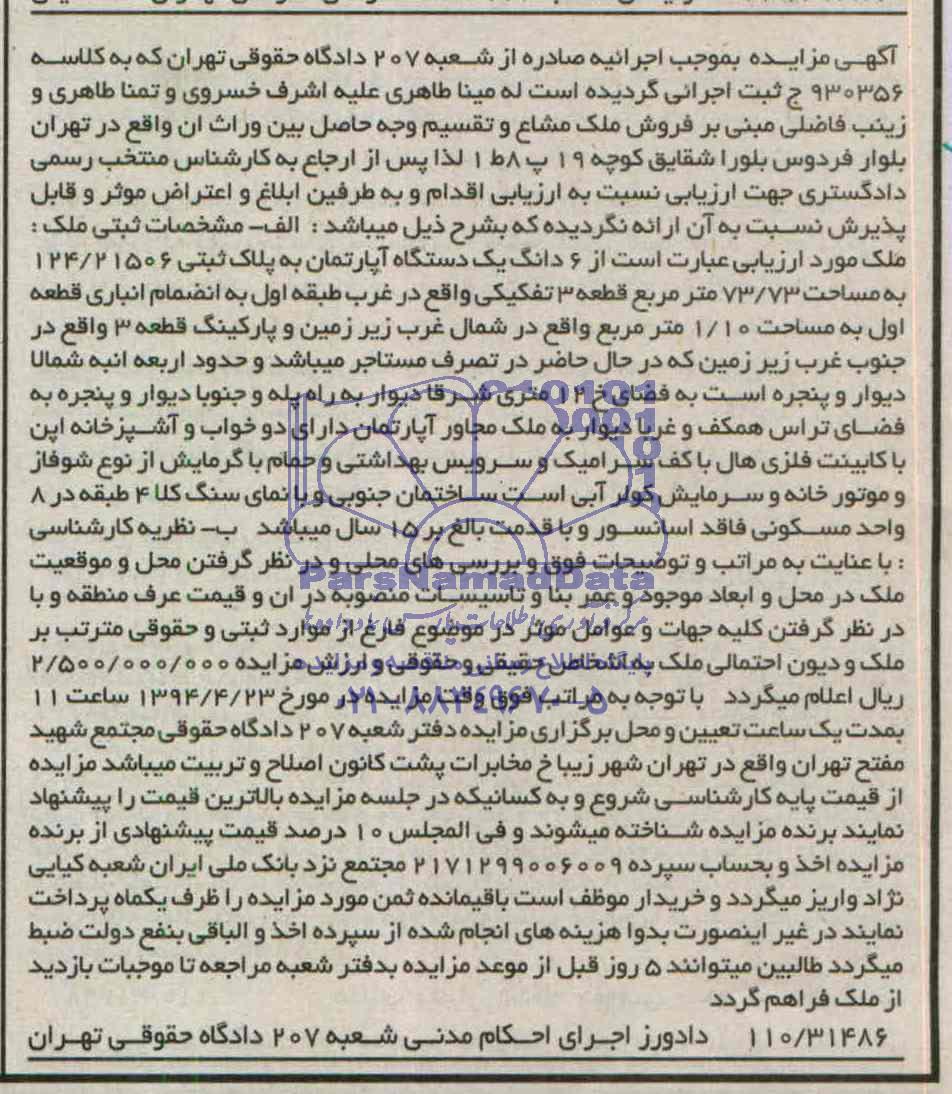 آگهی مزایده بموجب اجرائیه صادره از شعبه ۲۰۷ دادگاه حقوقی تهران که به کلاسه
۹۳۰۳۵۶ ج ثبت اجرائی گردیده است له مینا طاهری علیه اشرف خسروی و تمنا طاهری و
زینب فاضلی مبنی بر فروش ملک مشاع و تقسیم وجه حاصل بین وراث ان واقع در تهران
بلوار فردوس بلورا شقایق کوچه ۱۹ پ ۸ط ۱ لذا پس از ارجاع به کارشناس منتخب رسمی
دادگستری جهت ارزیابی نسبت به ارزیابی اقدام و به طرفین ابلاغ و اعتراض موثر و قابل
پذیرش نسبت به آن ارائه نگردیده که بشرح ذیل میباشد : الف- مشخصات ثبتی ملک :
ملک مورد ارزیابی عبارت است از ۶ دانگ یک دستگاه آپارتمان به پلاک ثبتی ۱۲۴/۲۱۵۰۶
به مساحت ۷۳/۷۳ متر مربع قطعه ۳ تفکیکی واقع در غرب طبقه اول به انضمام انباری قطعه
اول به مساحت ۱/۱۰ متر مربع واقع در شمال غرب زیر زمین و پارکینگ قطعه ۳ واقع در
جنوب غرب زیر زمین که در حال حاضر در تصرف مستاجر میباشد و حدود اربعه انبه شمالا
دیوار و پنجره است به فضای خ ۱۲ متری شرقا دیوار به راه پله و جنوبا دیوار و پنجره به
فضای تراس همکف و غربا دیوار به ملک مجاور آپارتمان دارای دو خواب و آشپزخانه اپن
با کابینت فلزی هال با کف سرامیک و سرویس بهداشتی و حمام با گرمایش از نوع شوفاز
و موتور خانه و سرمایش کولر آبی است ساختمان جنوبی و با نمای سنگ کلا ۴ طبقه در ۸
واحد مسکونی فاقد اسانسور و با قدمت بالغ بر ۱۵ سال میباشد ب- نظریه کارشناسی
: با عنایت به مراتب و توضیحات فوق و بررسی های محلی و در نظر گرفتن محل و موقعیت
ملک در محل و ابعاد موجود و عمر بنا و تاسیسات منصوبه در ان و قیمت عرف منطقه و با
در نظر گرفتن کلیه جهات و عوامل موثر در موضوع فارغ از موارد ثبتی و حقوقی مترتب بر
ملک و دیون احتمالی ملک به اشخاص حقیقی و حقوقی و ارزش مزایده ۲/۵۰۰/۰۰۰/۰۰۰
ریال اعلام میگردد با توجه به مراتب فوق وقت مزایده در مورخ ۱۳۹۴/۴/۲۳ ساعت ۱۱
بمدت یک ساعت تعیین و محل برگزاری مزایده دفتر شعبه ۲۰۷ دادگاه حقوقی مجتمع شهید
مفتح تهران واقع در تهران شهر زیبا خ مخابرات پشت کانون اصلاح و تربیت میباشد مزایده
از قیمت پایه کارشناسی شروع و به کسانیکه در جلسه مزایده بالاترین قیمت را پیشنهاد
نمایند برنده مزایده شناخته میشوند و فی المجلس ۱۰ درصد قیمت پیشنهادی از برنده
مزایده اخذ و بحساب سپرده ۲۱۷۱۲۹۹۰۰۶۰۰۹ مجتمع نزد بانک ملی ایران شعبه کیایی
نژاد واریز میگردد و خریدار موظف است باقیمانده ثمن مورد مزایده را ظرف یکماه پرداخت
نمایند در غیر اینصورت بدوا هزینه های انجام شده از سپرده اخذ و الباقی بنفع دولت ضبط
میگردد طالبین میتوانند ۵ روز قبل از موعد مزایده بدفتر شعبه مراجعه تا موجبات بازدید
از ملک فراهم گردد
۱۱۰/۳۱۴۸۶ دادورز اجرای احکام مدنی شعبه ۲۰۷ دادگاه حقوقی تهران
ParsNamadData